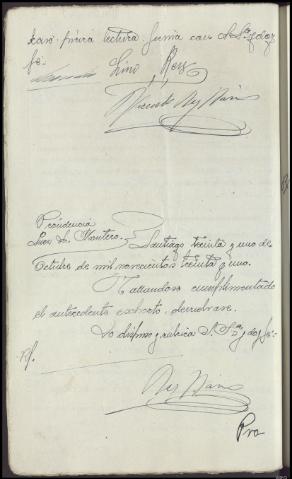 tural previa lectura firma con S. Sª y doy
fe.
Lino Rey
Vicente Rey Mariño
Providencia
Juez Sr. Montero. = Santiago treinta y uno de
Octubre de mil novecientos treinta y uno.
Hallandose cumplimentado
el antecedente exhorto, devuelvase.
Lo dispuso y rubrica S. Sª y doy fe.-
Rf.
Rey Mariño
Pro